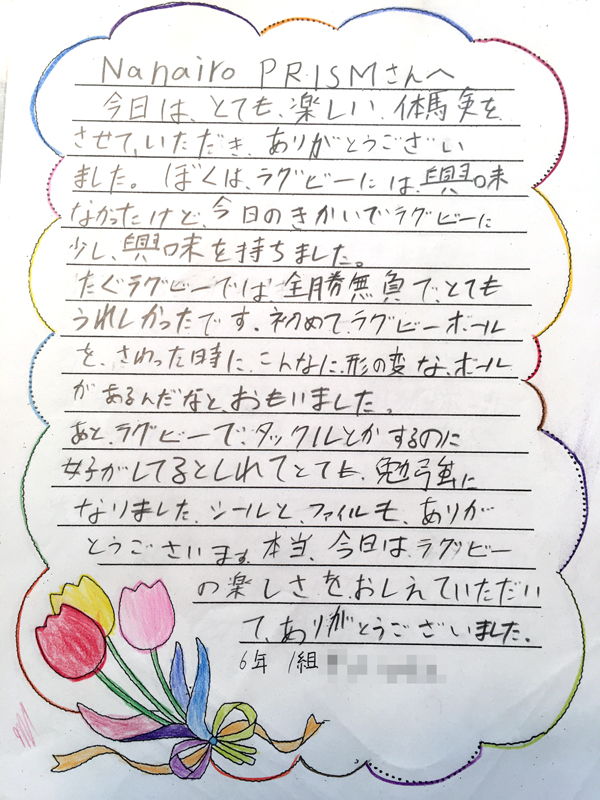 Nanairo PRISMさんへ
今日は、とても、楽しい、体馬魚を
させて、いただき、ありがとうござい
ました。ぼくは、ラグビーには、興味
なかったけど、今日のきかいでラグビーに
少し、興味を持ちました。
たぐラグビーでは、全勝無負で、とても
うれしかったです。初めて、ラグビーボール
を、さわった時に、こんなに、形の変な、ボール
があるんだなと、おもいました。
あと、ラグビーで、タックルとかするのに
女子がしてるとしれてとても、勉強に
なりました。シールと、ファイルも、ありが
とうございます。本当、今日は、ラグビー
の楽しさを、おしえていただい
て、ありがとうございました。
6年 1組